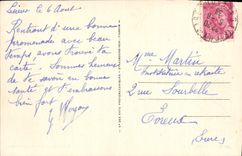 Lisieux le 6 Aout
Rentrant d'une bonne
promenade avec beau
temps, avons trouvé ta
carte. Sommes heureux
de te savoir en bonne
santé et t'embrassons
bien fort
Mme Martin
Institutrice en retraite
2 rue Sourbelle
Evreux
(Eure)